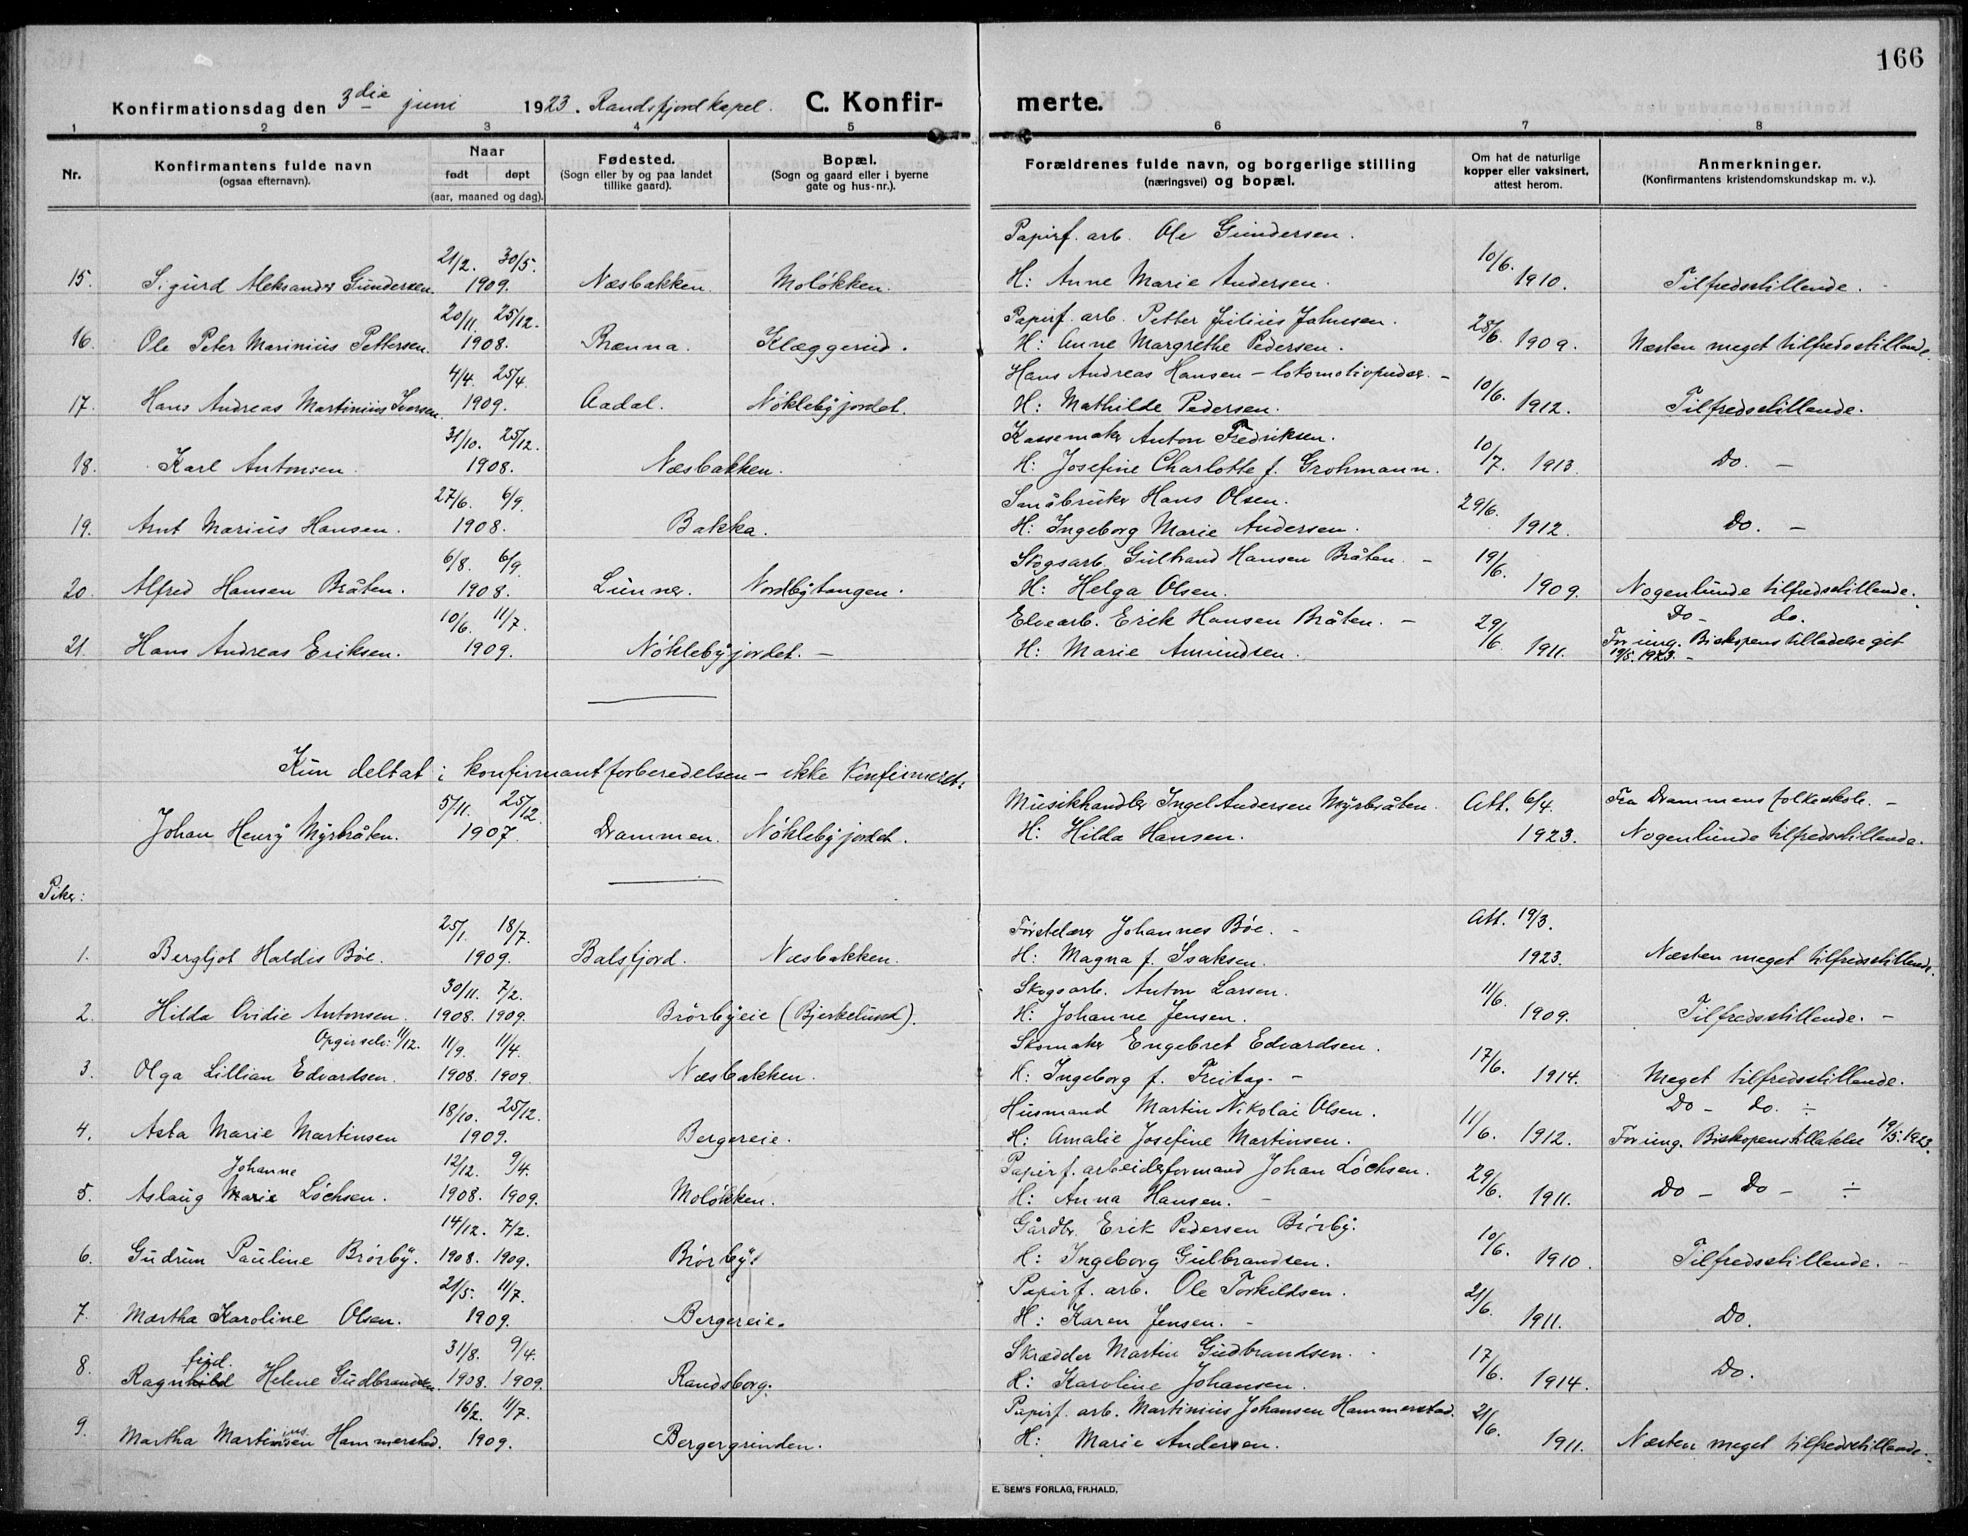 166
Konfirmationsdag den 3die juni 1923. Randsfjord kapel. C. Konfir- merte.
1 2 3 4 5 6 7 8
Nr. Konfirmantens fulde navn (ogsaa efternavn). Naar født døpt (aar, maaned og dag). Fødested. (Sogn eller by og paa landet tillike gaard). Bopæl. (Sogn og gaard eller i byerne gate og hus-nr.). Forældrenes fulde navn, og borgerlige stilling (næringsvei) og bopæl. Om hat de naturlige kopper eller vaksinert, attest herom. Anmerkninger. (Konfirmantens kristendomskundskap m. v.).
21/2. 30/5. Papirf. arb. Ole Gundersen. 10/6.
15. Sigurd Aleksander Gundersen. 1909. Næsbakken. Moløkken. H: Anne Marie Andersen. 1910. Tilfredsstillende.
20/11. 25/12. Papirf. arb. Petter Julius Johnsen. 25/6
16. Ole Peter Marinius Pettersen. 1908. Brænna. Klæggerud. H: Anne Margrethe Pedersen. 1909. Næsten meget tilfredsstillende.
4/4. 25/4. Hans Andreas Hansen - lokomotivpudser. - 10/6.
17. Hans Andreas Martinius Iversen. 1909. Aadal. Nøklebyjordet. H: Mathilde Pedersen. 1912. Tilfredsstillende.
31/10. 25/12. Kassemaker Anton Fredriksen. 10/7.
18. Karl Antonsen. 1908. Næsbakken. H: Josefine Charlotte f. Grohmann. 1913. Do. -
27/6. 6/9. Småbruker Hans Olsen. 29/6.
19. Arnt Marius Hansen. 1908. Bakka. H: Ingeborg Marie Andersen. 1912. Do. -
6/8. 6/9. Skogsarb. Gulbrand Hansen Bråten. - 19/6.
20. Alfred Hansen Bråten. 1908. Lunner. Nordbytangen. H: Helga Olsen. 1909. Nogenlunde tilfredsstillende.
10/6. 11/7. Elvearb. Erik Hansen Bråten. - 29/6 Do - do.
21. Hans Andreas Eriksen. 1909. Nøklebyjordet. - H: Marie Amundsen. 1911. For ung. Biskopens tilladelse git
19/5. 1923. -
Kun deltat i konfirmantforberedelsen - ikke Konfirmeret:
5/11. 25/12. Musikhandler Ingel Andersen Myrbråten. Att. 6/4. Fra Drammens folkeskole. -
Johan Henry Myrbråten. 1907. Drammen. Nøklebyjordet. H: Hilda Hansen. 1923. Nogenlunde tilfredsstillende.
Piker:
25/1. 18/7. Førstelærer Johannes Bøe. - Att. 19/3.
1. Bergljot Haldis Bøe. 1909. Balsfjord. Næsbakken. H: Magna f. Isaksen. 1923. Næsten meget tilfredsstillende.
30/11. 7/2. Skogsarb. Anton Larsen. 11/6.
2. Hilda Ovidie Antonsen. 1908. 1909. Brørbyeie (Bjerkelund). H: Johanne Jensen. 1909. Tilfredsstillende. -
Opgir selv: 11/12. 11/9. 11/4. Skomaker Engebret Edvardsen. 17/6.
3. Olga Lillian Edvardsen. 1908. 1909. Næsbakken. H: Ingeborg f. Freitag. - 1914. Meget tilfredsstillende.
18/10. 25/12. Husmand Martin Nikolai Olsen. 11/6. Do - do. ÷
4. Asta Marie Martinsen 1909. Bergereie. H: Amalie Josefine Martinsen. 1912. For ung. Biskopens tillatelse 19/5. 1923.
Johanne 12/12. 9/4. Papirf. arbeiderformand Johan Løchsen. 29/6.
5. Aslaug Marie Løchsen. 1908. 1909. Moløkken. H: Anna Hansen. - 1911. Do - Do - ÷
14/12. 7/2. Gårdbr. Erik Pedersen Brørby. 10/6.
6. Gudrun Pauline Brørby. 1908. 1909. Brørby. H: Ingeborg Gulbrandsen. 1910. Tilfredsstillende. -
21/5. 11/7. Papirf. arb. Ole Torkildsen. 21/6
7. Martha Karoline Olsen. 1909. Bergereie. H: Karen Jensen. - 1911. Do.
frid. 31/8. 9/4. Skrædder Martin Gudbrandsen. 17/6.
8. Ragnhild Helene Gudbrandsen. 1908. 1909. Randsborg. H: Karoline Johansen. 1914. Do.
16/2. 11/7. Papirf. arb. Martinius Johansen Hammerstad. 21/6.
9. Martha Martinsen Hammerstad. 1909. Bergergrinden. H: Marie Andersen. 1911. Næsten meget tilfredsstillende. -
E. SEM'S FORLAG, FR.HALD.